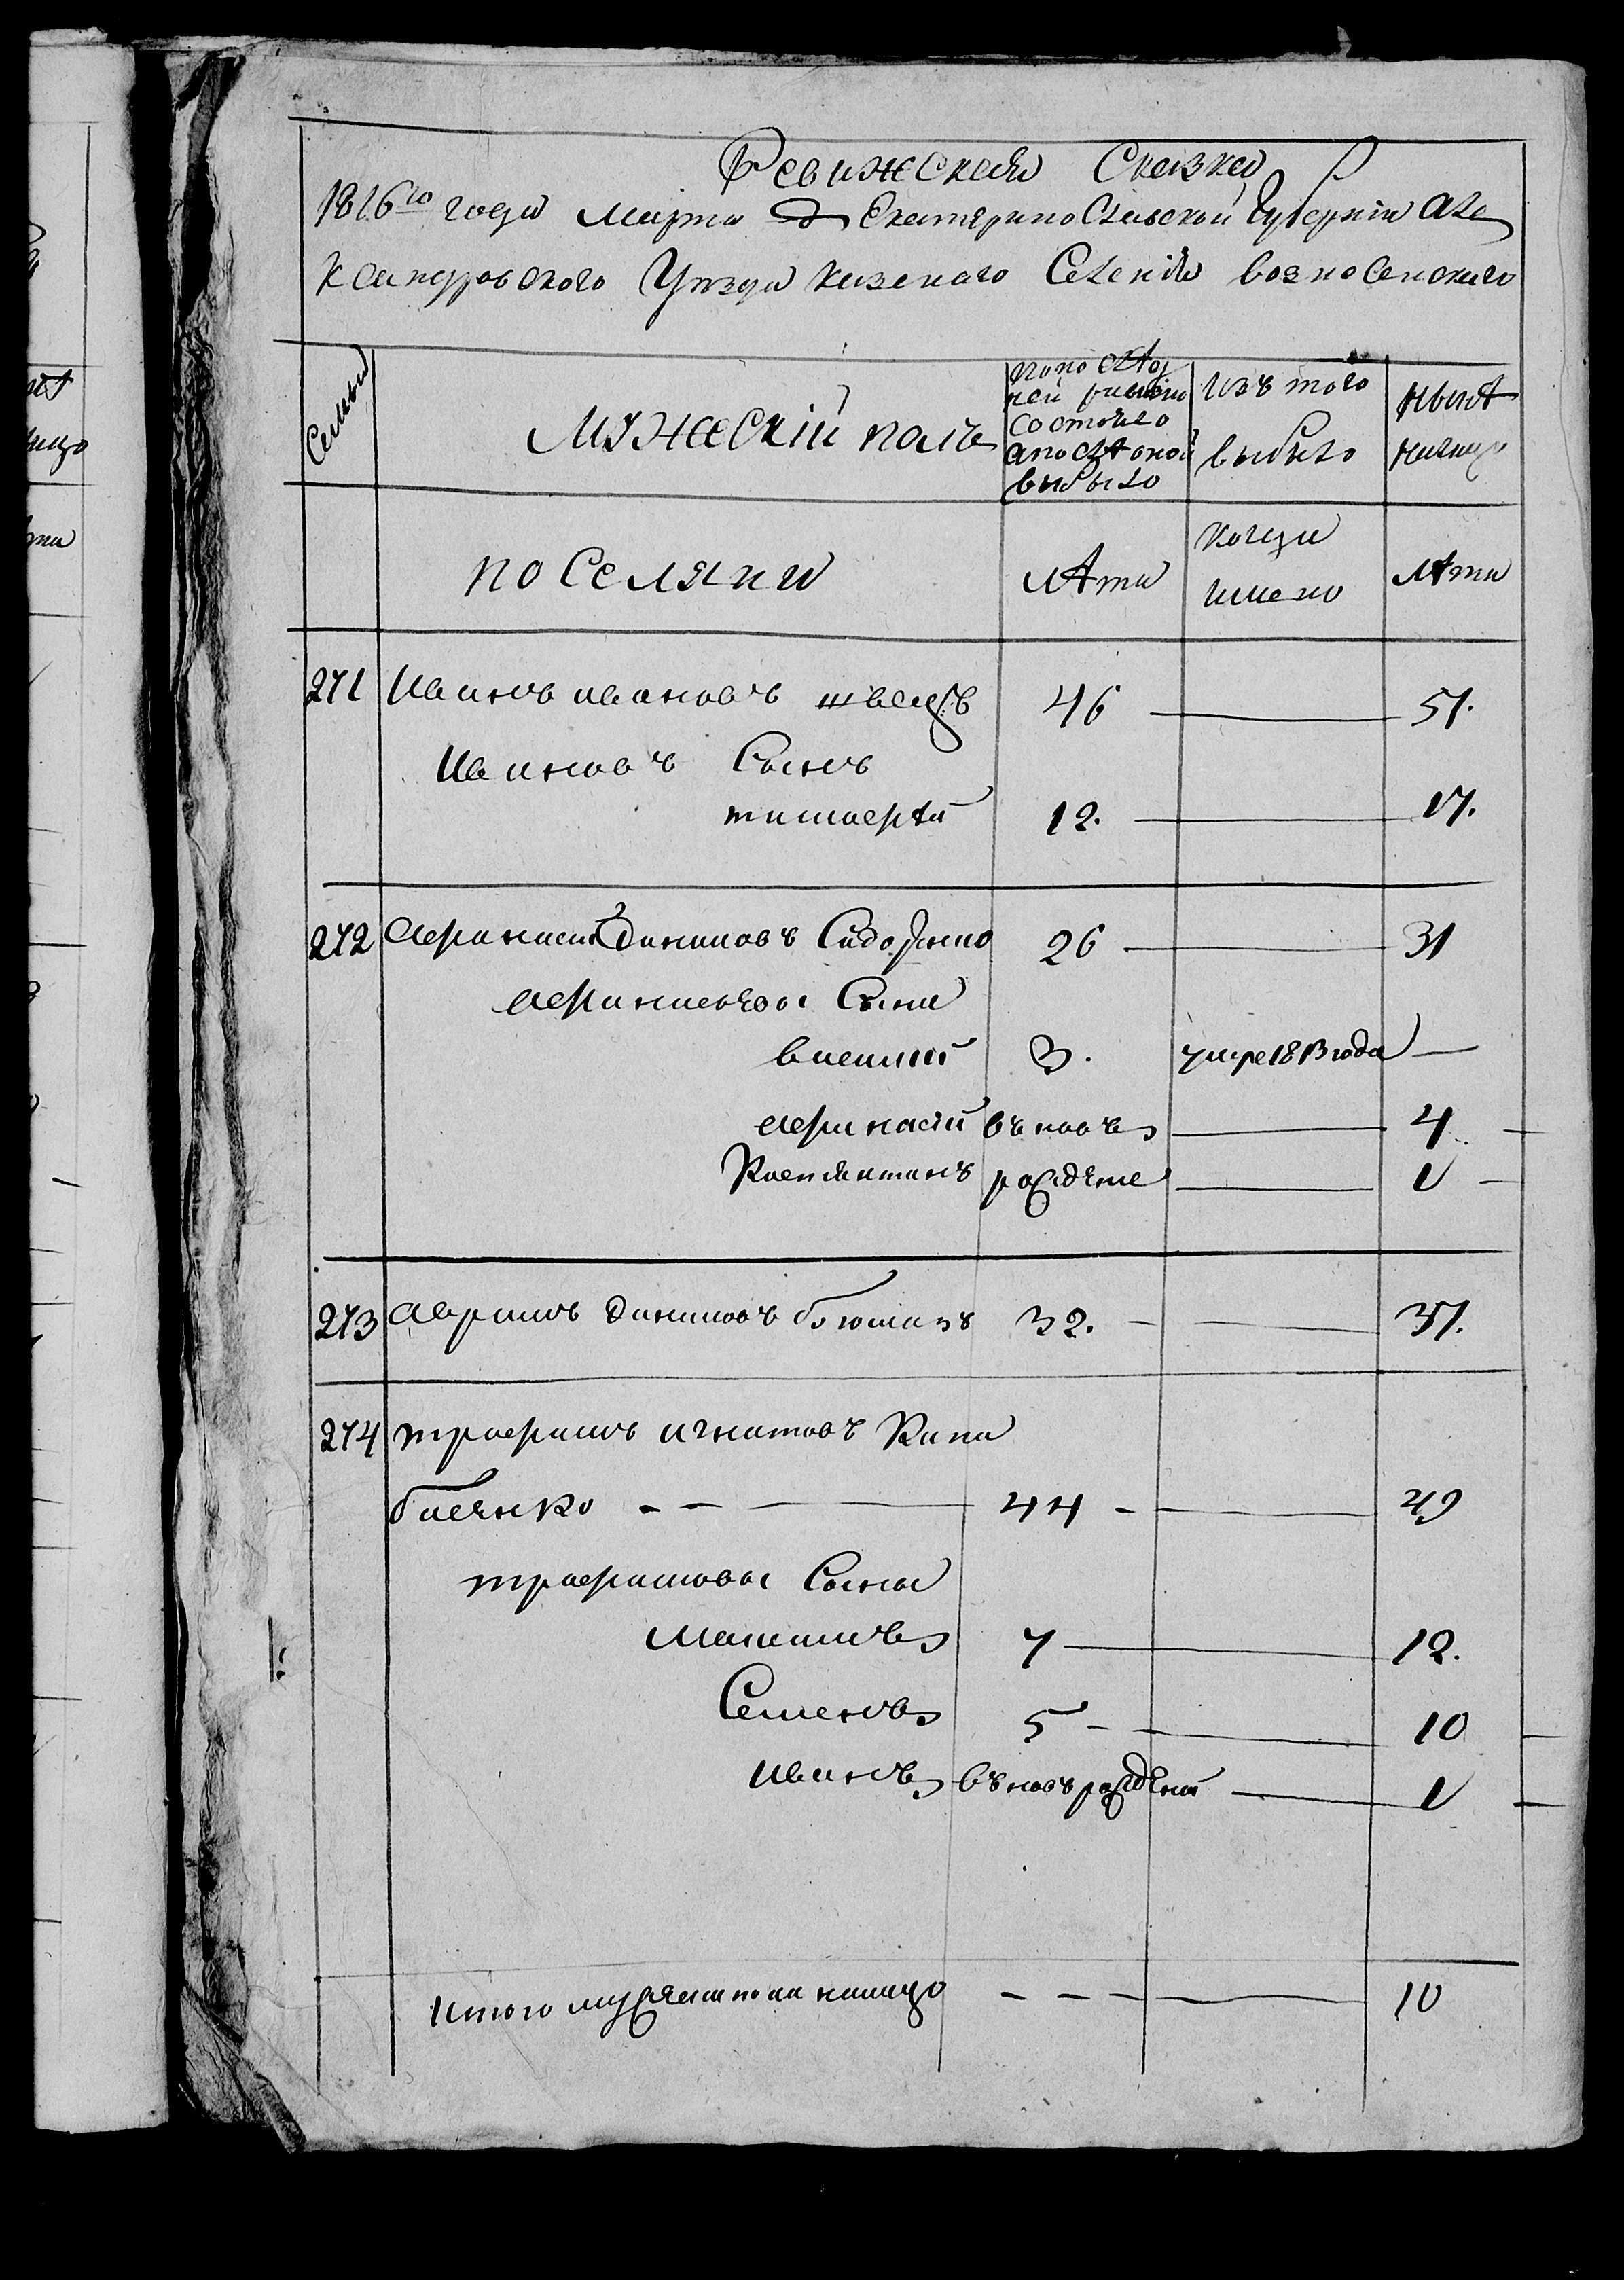 Ревижская Сказка
1816го года Марта Екатеринославской Губерніи Але
ксандровского Уезда казенаго Селенія вознесенскаго
Семьи
Мужескій полъ
по послѣд
ней ревизіи
состояло
а послѣ оной
выбыло
Изъ того
выбыло
Нынѣ
на лицо
поселяни
лѣта
когда
имено
лѣта
271 Иванъ ивановъ швецъ 46 51.
Ивановъ Сынъ
тимофѣй 12. 17.
272 Афанасий Даниловъ Сидоренко 26 31
афанасьевы Сына
василий 3. умре 1813 года
афанасій въновъ 4
Костянтинъ рожденые 1
273 Абрамъ Даниловъ 32. 37.
274 трофимъ игнатовъ Капи
44 49
трофимовы Сыны
Максимъ 7 12.
Семенъ 5 10
Иванъ въновърожденый 1
Итого мужеска пола налицо 10